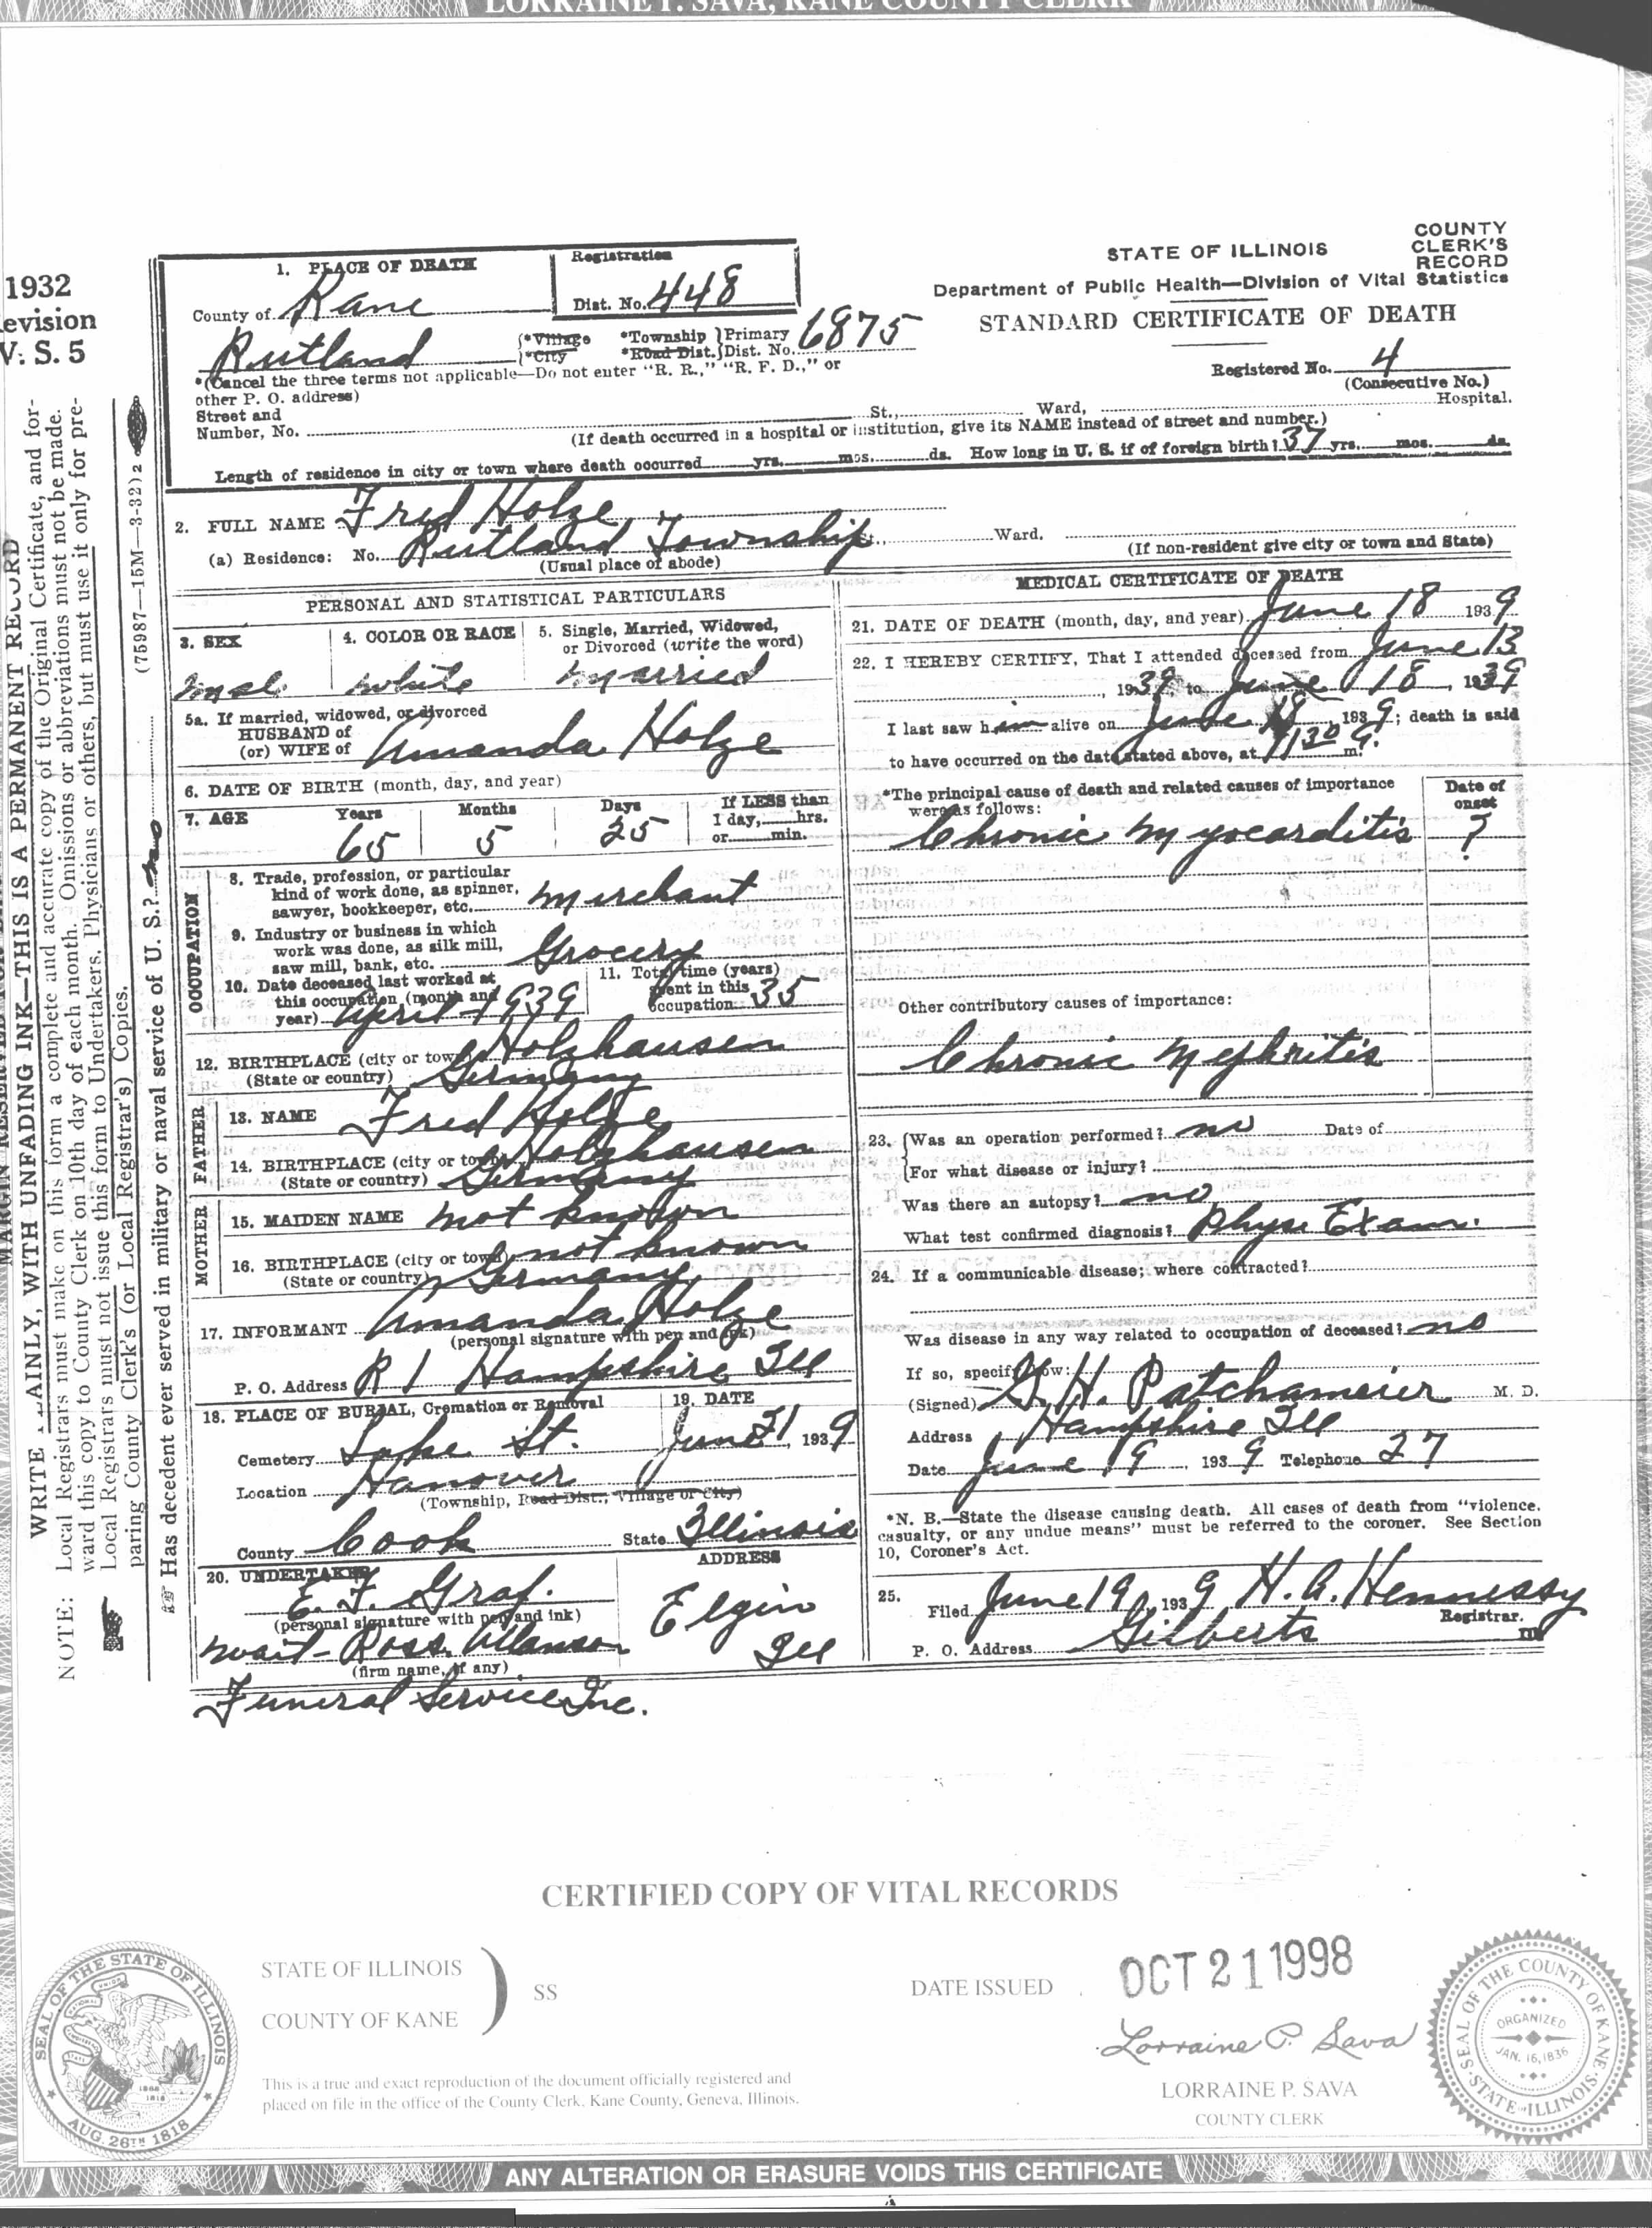 LORRAINE P. SAVA, KANE COUNTY CLERK
COUNTY
CLERK'S
RECORD
STATE OF ILLINOIS
Department of Public Health—Division of Vital Statistics
STANDARD CERTIFICATE OF DEATH
Registered No. 4
(Consecutive No.)
1932
evision
V. S. 5
1. PLACE OF DEATH
County of Kane
Registration
Dist. No. 448
Rutland
*Village *Township Primary
*City *Road Dist. Dist. No. 6875
*(Cancel the three terms not applicable—Do not enter "R. R.," "R. F. D.," or
other P. O. address)
Street and
Number, No. St., Ward, Hospital.
(If death occurred in a hospital or institution, give its NAME instead of street and number.)
Length of residence in city or town where death occurred yrs. mos. ds. How long in U. S. if of foreign birth? 37 yrs. mos. ds.
2. FULL NAME Fred Holze
(a) Residence: No. Rutland Township St., Ward.
(Usual place of abode)
(If non-resident give city or town and State)
PERSONAL AND STATISTICAL PARTICULARS
3. SEX
4. COLOR OR RACE
5. Single, Married, Widowed,
or Divorced (write the word)
mal white married
5a. If married, widowed, or divorced
HUSBAND of
(or) WIFE of Amanda Holze
6. DATE OF BIRTH (month, day, and year)
7. AGE Years Months Days If LESS than
1 day, hrs.
or min.
65 5 25
OCCUPATION
8. Trade, profession, or particular
kind of work done, as spinner,
sawyer, bookkeeper, etc. Merchant
9. Industry or business in which
work was done, as silk mill,
saw mill, bank, etc. Grocery
10. Date deceased last worked at
this occupation (month and
year) April 1939
11. Total time (years)
spent in this
occupation 35
12. BIRTHPLACE (city or town) Holzhausen
(State or country) Germany
FATHER
13. NAME Fred Holze
14. BIRTHPLACE (city or town) Holzhausen
(State or country) Germany
MOTHER
15. MAIDEN NAME not known
16. BIRTHPLACE (city or town) not known
(State or country) Germany
17. INFORMANT Amanda Holze
(personal signature with pen and ink)
P. O. Address R 1 Hampshire Ill
18. PLACE OF BURIAL, Cremation or Removal
19. DATE
Cemetery Lake St. June 21, 1939
Location Hanover
(Township, Road Dist., Village or City)
County Cook State Illinois
20. UNDERTAKER
ADDRESS
E. F. Graf.
(personal signature with pen and ink)
Elgin
Wait-Ross Allanson
Ill
(firm name, if any)
Funeral Service Inc.
MEDICAL CERTIFICATE OF DEATH
21. DATE OF DEATH (month, day, and year) June 18 1939
22. I HEREBY CERTIFY, That I attended deceased from June 13
, 1939, to June 18, 1939
I last saw him alive on June 18, 1939; death is said
to have occurred on the date stated above, at 1130 m.
*The principal cause of death and related causes of importance
were as follows:
Date of
onset
Chronic Myocarditis ?
Other contributory causes of importance:
Chronic Nephritis
23. Was an operation performed? no Date of
For what disease or injury?
Was there an autopsy? no
What test confirmed diagnosis? Phys Exam.
24. If a communicable disease; where contracted?
Was disease in any way related to occupation of deceased? no
If so, specify how:
(Signed) H. Patchameier M. D.
Address Hampshire Ill
Date June 19, 1939 Telephone 27
*N. B.—State the disease causing death. All cases of death from "violence,
casualty, or any undue means" must be referred to the coroner. See Section
10, Coroner's Act.
25.
Filed June 19, 1939 H. A. Hennessy
Registrar.
P. O. Address Gilberts Ill
WRITE PLAINLY, WITH UNFADING INK—THIS IS A PERMANENT RECORD
NOTE: Local Registrars must make on this form a complete and accurate copy of the Original Certificate, and for-
ward this copy to County Clerk on 10th day of each month. Omissions or abbreviations must not be made.
Local Registrars must not issue this form to Undertakers. Physicians or others, but must use it only for pre-
paring County Clerk's (or Local Registrar's) Copies.
(75987—15M—3-32) 2
Has decedent ever served in military or naval service of U. S.? no
CERTIFIED COPY OF VITAL RECORDS
STATE OF ILLINOIS
COUNTY OF KANE
SS
DATE ISSUED OCT 21 1998
Lorraine P. Sava
LORRAINE P. SAVA
COUNTY CLERK
This is a true and exact reproduction of the document officially registered and
placed on file in the office of the County Clerk, Kane County, Geneva, Illinois.
SEAL OF THE STATE OF ILLINOIS
AUG. 26TH 1818
SEAL OF THE COUNTY OF KANE
STATE ILLINOIS
ORGANIZED
JAN. 16, 1836
ANY ALTERATION OR ERASURE VOIDS THIS CERTIFICATE